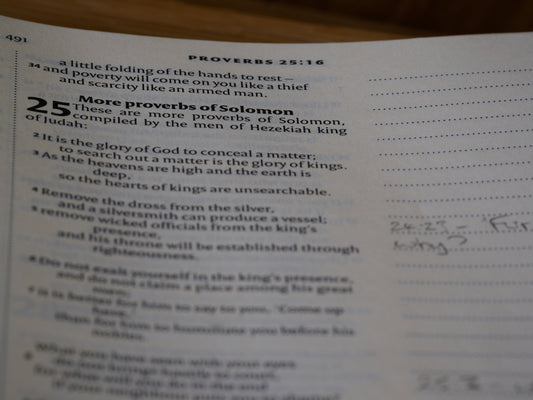 491
PROVERBS 25:16
a little folding of the hands to rest –
34 and poverty will come on you like a thief
and scarcity like an armed man.
More proverbs of Solomon
25 These are more proverbs of Solomon,
compiled by the men of Hezekiah king
of Judah:
2 It is the glory of God to conceal a matter;
to search out a matter is the glory of kings.
3 As the heavens are high and the earth is
deep,
so the hearts of kings are unsearchable.
4 Remove the dross from the silver,
and a silversmith can produce a vessel;
5 remove wicked officials from the king's
presence,
and his throne will be established through
righteousness.
6 Do not exalt yourself in the king's presence,
and do not claim a place among his great
men;
7 it is better for him to say to you, 'Come up
here,'
than for him to humiliate you before his
nobles.
What you have seen with your eyes
do not bring hastily to court,
for what will you do in the end
if your neighbour puts you to shame?
24:27 –
why?